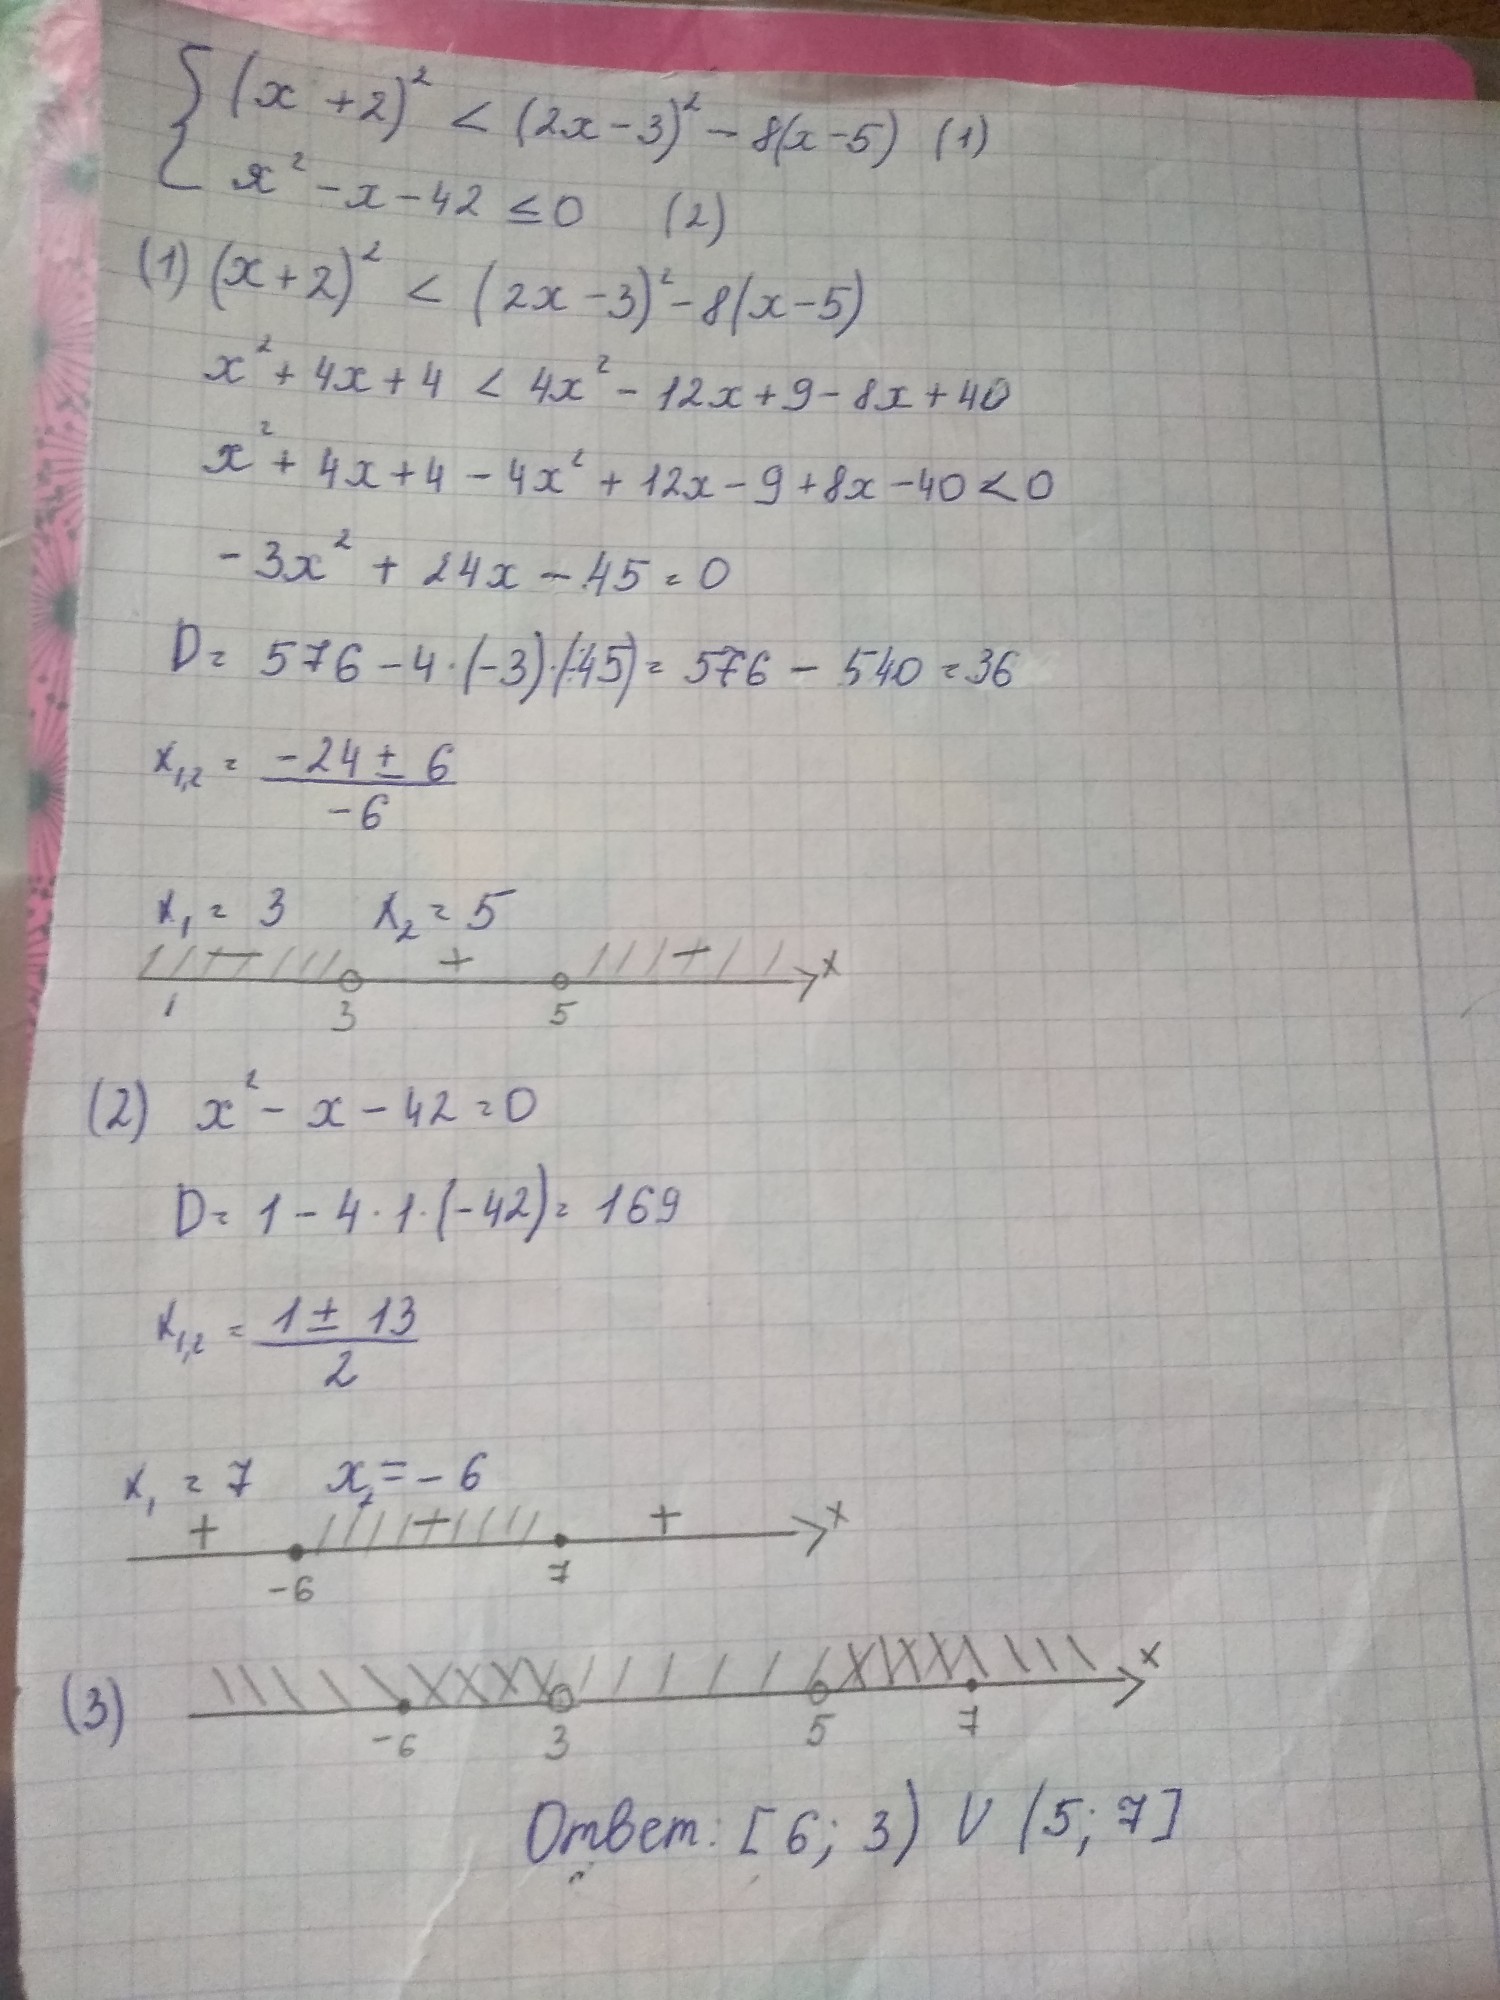 { (x + 2)² < (2x - 3)² - 8(x - 5) (1)
x² - x - 42 ≤ 0 (2)
(1) (x + 2)² < (2x - 3)² - 8(x - 5)
x² + 4x + 4 < 4x² - 12x + 9 - 8x + 40
x² + 4x + 4 - 4x² + 12x - 9 + 8x - 40 < 0
-3x² + 24x - 45 = 0
D = 576 - 4 · (-3) · (-45) = 576 - 540 = 36
x₁,₂ = (-24 ± 6)/(-6)
x₁ = 3 x₂ = 5
- + - x
1 3 5
(2) x² - x - 42 = 0
D = 1 - 4 · 1 · (-42) = 169
x₁,₂ = (1 ± 13)/2
x₁ = 7 x₂ = -6
+ - + x
-6 7
(3) x
-6 3 5 7
Ответ: [6; 3) ∪ (5; 7]